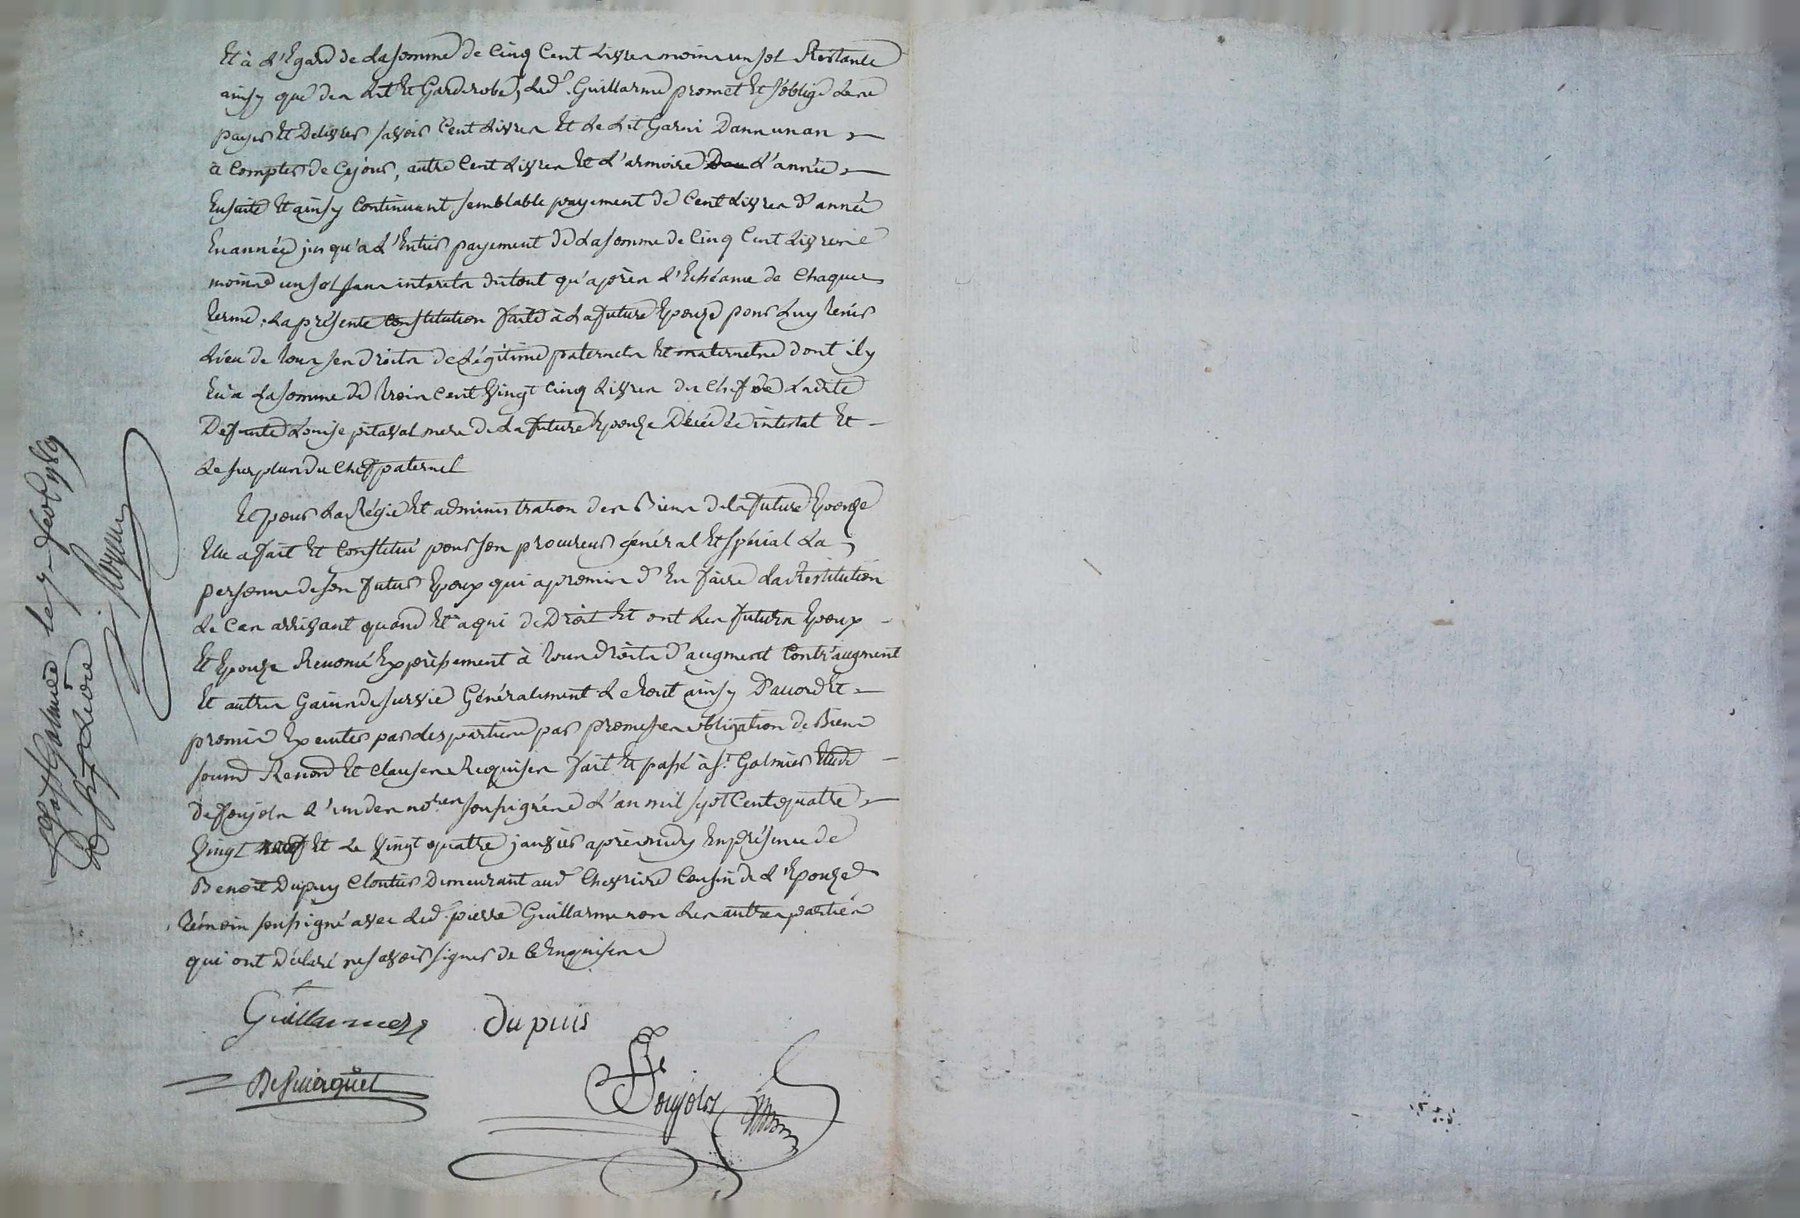 Et à L'Egard de la somme de Cinq Cent Livres moins un sol Restante
ainsy que des Lit Et Garderobe, Led. Guillarme promet Et s'oblige de ne
payer Et Delivrer savoir Cent Livres Et Le Lit Garni Dans un an
à Compter de Cejour, autre Cent Livres Et L'armoire L'année
Ensuite Et ainsy Continuant semblable payement de Cent Livres D'année
En année jusqu'à L'Entier payement de La somme de Cinq Cent Livres
moins un sol sans interets du tout qu'après L'Echéance de Chaque
terme; La présente Constitution faite à La future Epouze pour Luy tenir
Lieu de tous ses Droits de Légitime paternels Et maternels dont il y
En a La somme de trois Cent Vingt Cinq Livres du Chef de Ladite
Defunte Louise pitaval mere de La future Epouze Décédée intestat Et
Le surplus du Chef paternel
Et pour La Régie Et administration des Biens de la future Epouze
Elle a fait Et Constitué pour son procureur général Et spécial La
personne de son futur Epoux qui a promis d'En faire La Restitution
Le Cas arrivant quand Et à qui de Droit Et ont Les futurs Epoux
Et Epouze Renoncé Expressement à tous droits d'augment Contr'augment
Et autres Gains de survie Généralement Le tout ainsy D'accord Et
promis Executer par Les parties par promesses obligation de Biens
soums Renon Et Clauses Requises fait Et passé à St Galmier Etude
De Poujols L'un des notres soussignés L'an mil sept Cent quatre
Vingt neuf Et Le Vingt quatre janvier après midy En présence de
Benoit Dupuy Cloutier Demeurant aud. Chevrière Cousin de L'Epouze
témoin soussigné avec Led. pierre Guillarme non Les autres parties
qui ont Déclaré ne savoir signer de Ce Enquises
Guillarme Dupuis
Poujols
le 7 1789